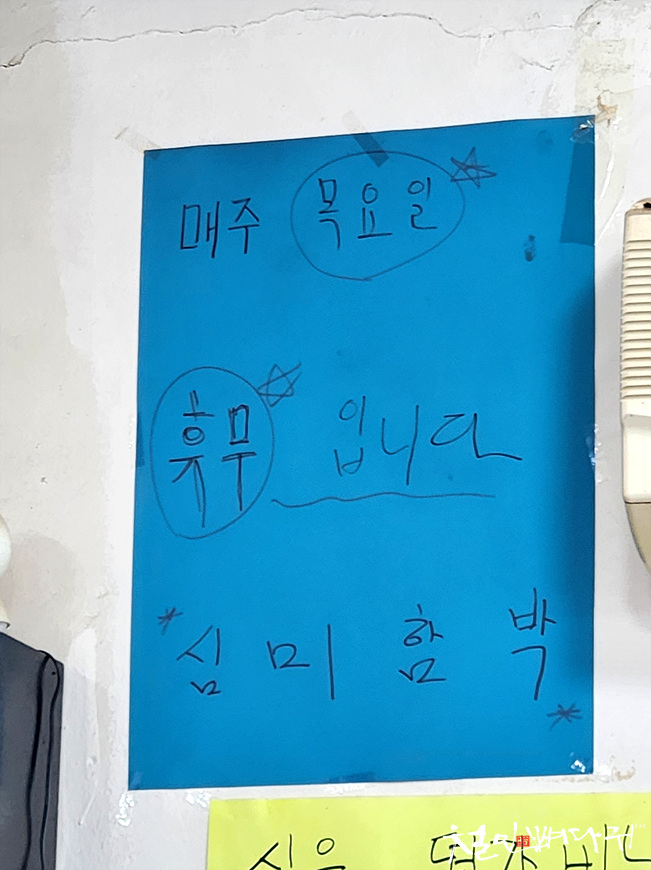 매주 목요일
휴무 입니다
심미함박